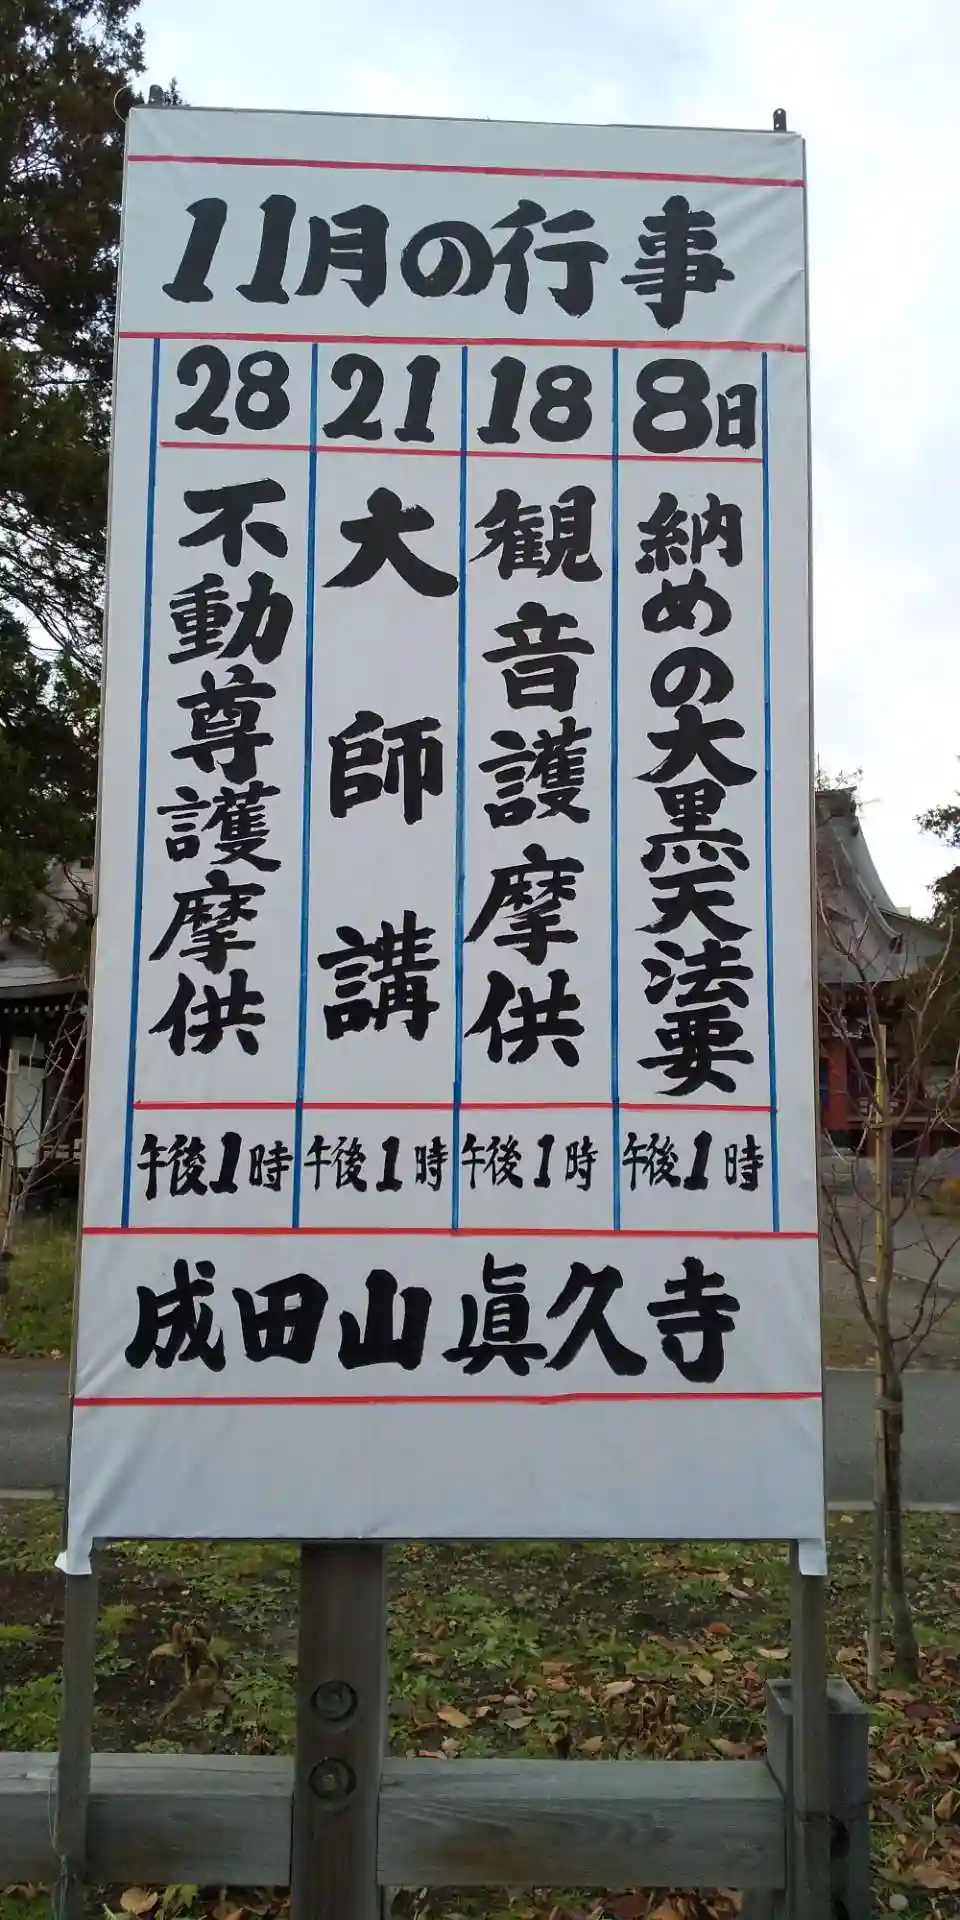 11月の行事
8日
納めの大黒天法要
午後1時
18
観音護摩供
午後1時
21
大師講
午後1時
28
不動尊護摩供
午後1時
成田山眞久寺